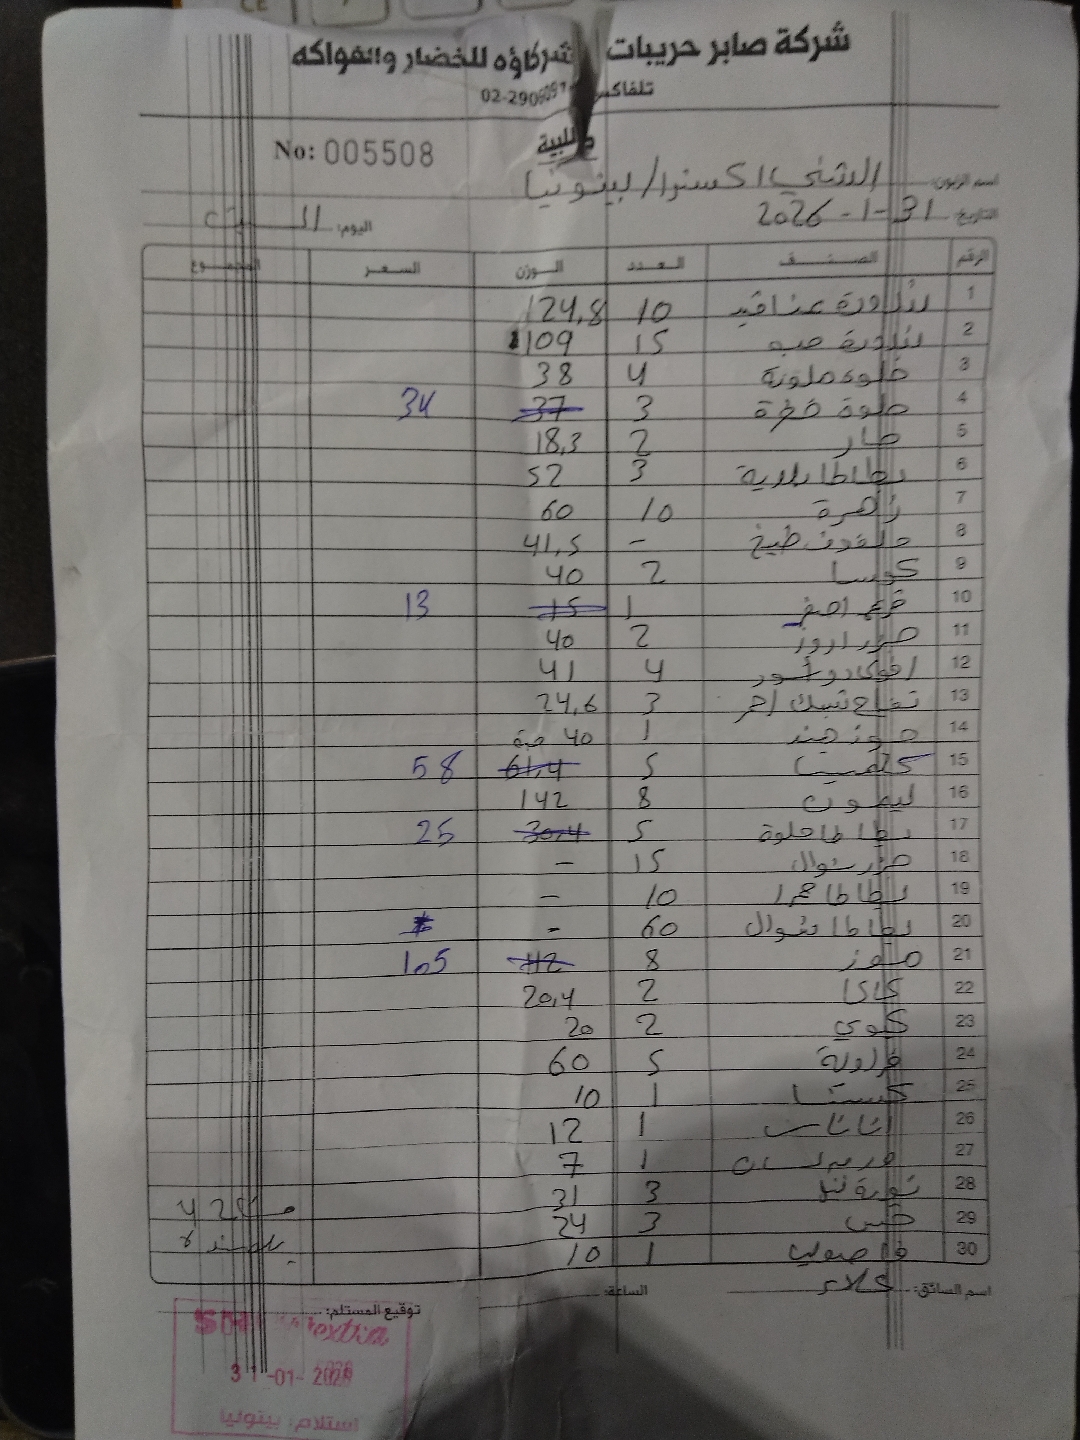 شركة صابر حريبات وشركاؤه للخضار والفواكه
تلفاكس
طلبية
No: 005508
اسم الزبون: الشني اكسترا/ بيتونيا
التاريخ: 31-1-2026 اليوم: السبت
الرقم الصنف العدد الوزن السعر المجموع
1 بندورة عناقيد 10 124,8
2 بندورة حب 15 109
3 حلوة ملونة 4 38
4 حلوة خضرة 3 37 34
5 حار 2 18,3
6 بطاطا بلدية 3 52
7 زهرة 10 60
8 ملفوف طبيخ - 41,5
9 كوسا 2 40
10 قرع اصفر 1 15 13
11 2 40
12 افوكادو 4 41
13 تفاح احمر 3 24,6
14 جوز هند 1 40 حبة
15 5 61,4 58
16 ليمون 8 142
17 بطاطا حلوة 5 30,4 25
18 جزر شوال 15 -
19 بطاطا حمرا 10 -
20 بطاطا شوال 60 -
21 موز 8 112 105
22 كاكا 2 20,4
23 كيوي 2 20
24 فراولة 5 60
25 كستنا 1 10
26 اناناس 1 12
27 1 7
28 3 31
29 خس 3 24
30 فاصوليا 1 10
اسم السائق: علاء الساعة:
توقيع المستلم:
31-01-2026
استلام: بيتونيا